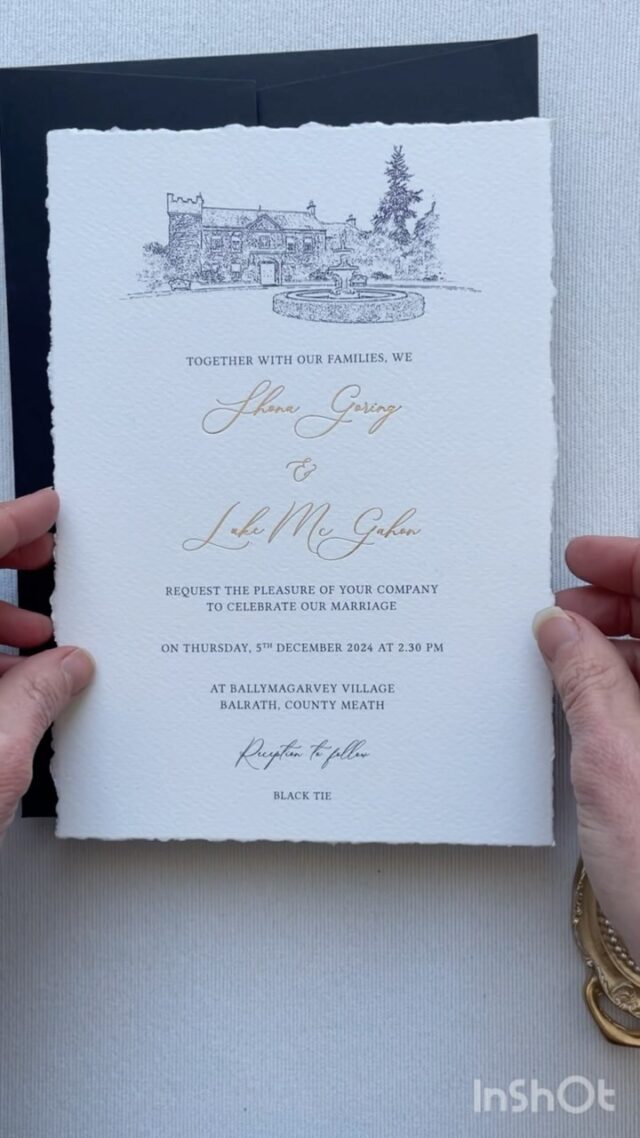 TOGETHER WITH OUR FAMILIES, WE
Shona Goring
&
Luke Mc Gahon
REQUEST THE PLEASURE OF YOUR COMPANY
TO CELEBRATE OUR MARRIAGE
ON THURSDAY, 5TH DECEMBER 2024 AT 2.30 PM
AT BALLYMAGARVEY VILLAGE
BALRATH, COUNTY MEATH
Reception to follow
BLACK TIE
InShOt